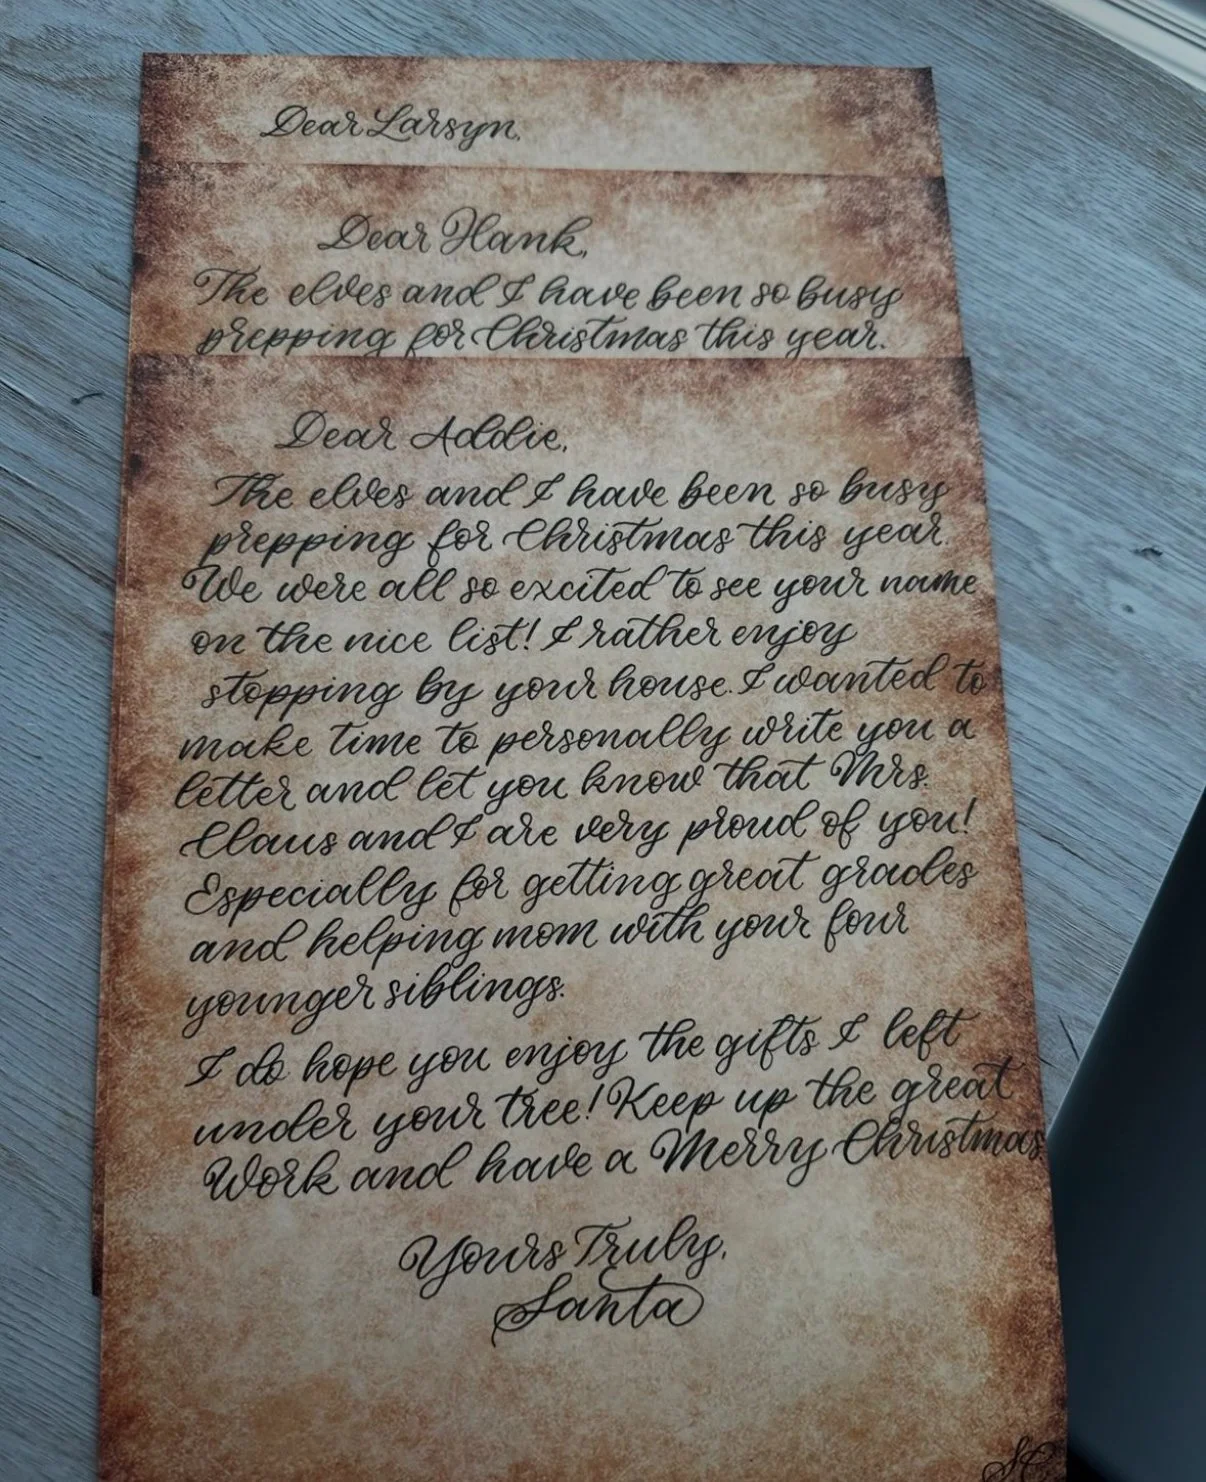 Dear Larsyn,
Dear Hank,
The elves and I have been so busy
prepping for Christmas this year.
Dear Addie,
The elves and I have been so busy
prepping for Christmas this year.
We were all so excited to see your name
on the nice list! I rather enjoy
stopping by your house. I wanted to
make time to personally write you a
letter and let you know that Mrs.
Claus and I are very proud of you!
Especially for getting great grades
and helping mom with your four
younger siblings.
I do hope you enjoy the gifts I left
under your tree! Keep up the great
Work and have a Merry Christmas
Yours Truly,
Santa
SC